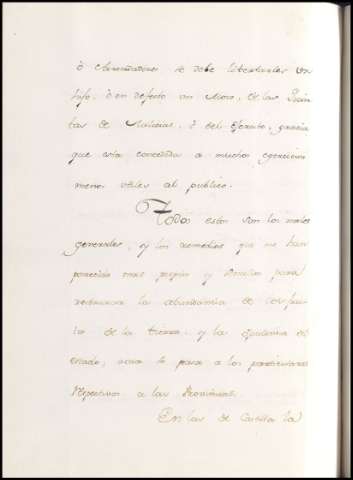 ò Arrendadores se debe libertarles un
hijo, ò en defecto un Mozo, de las Quin
tas de Milicias, ò del Exercito, gracia
que està concedida a muchos exercicios
menos utiles al publico.
Todos estos son los males
generales, y los remedios que me han
parecido mas propios y sencillos para
restaurar la abundancia de los fru
tos de la tierra, y la opulencia del
estado, ahora se pasa a los particulares
respectivos a las Provincias.
En las de Castilla la